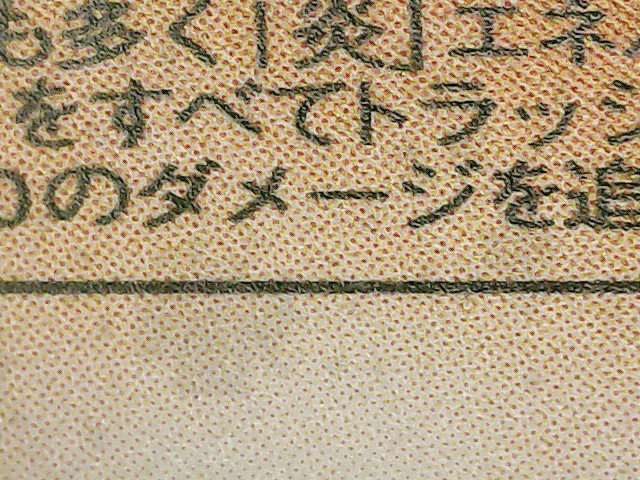 も多く「炎」エネル
をすべてトラッシ
つのダメージを追